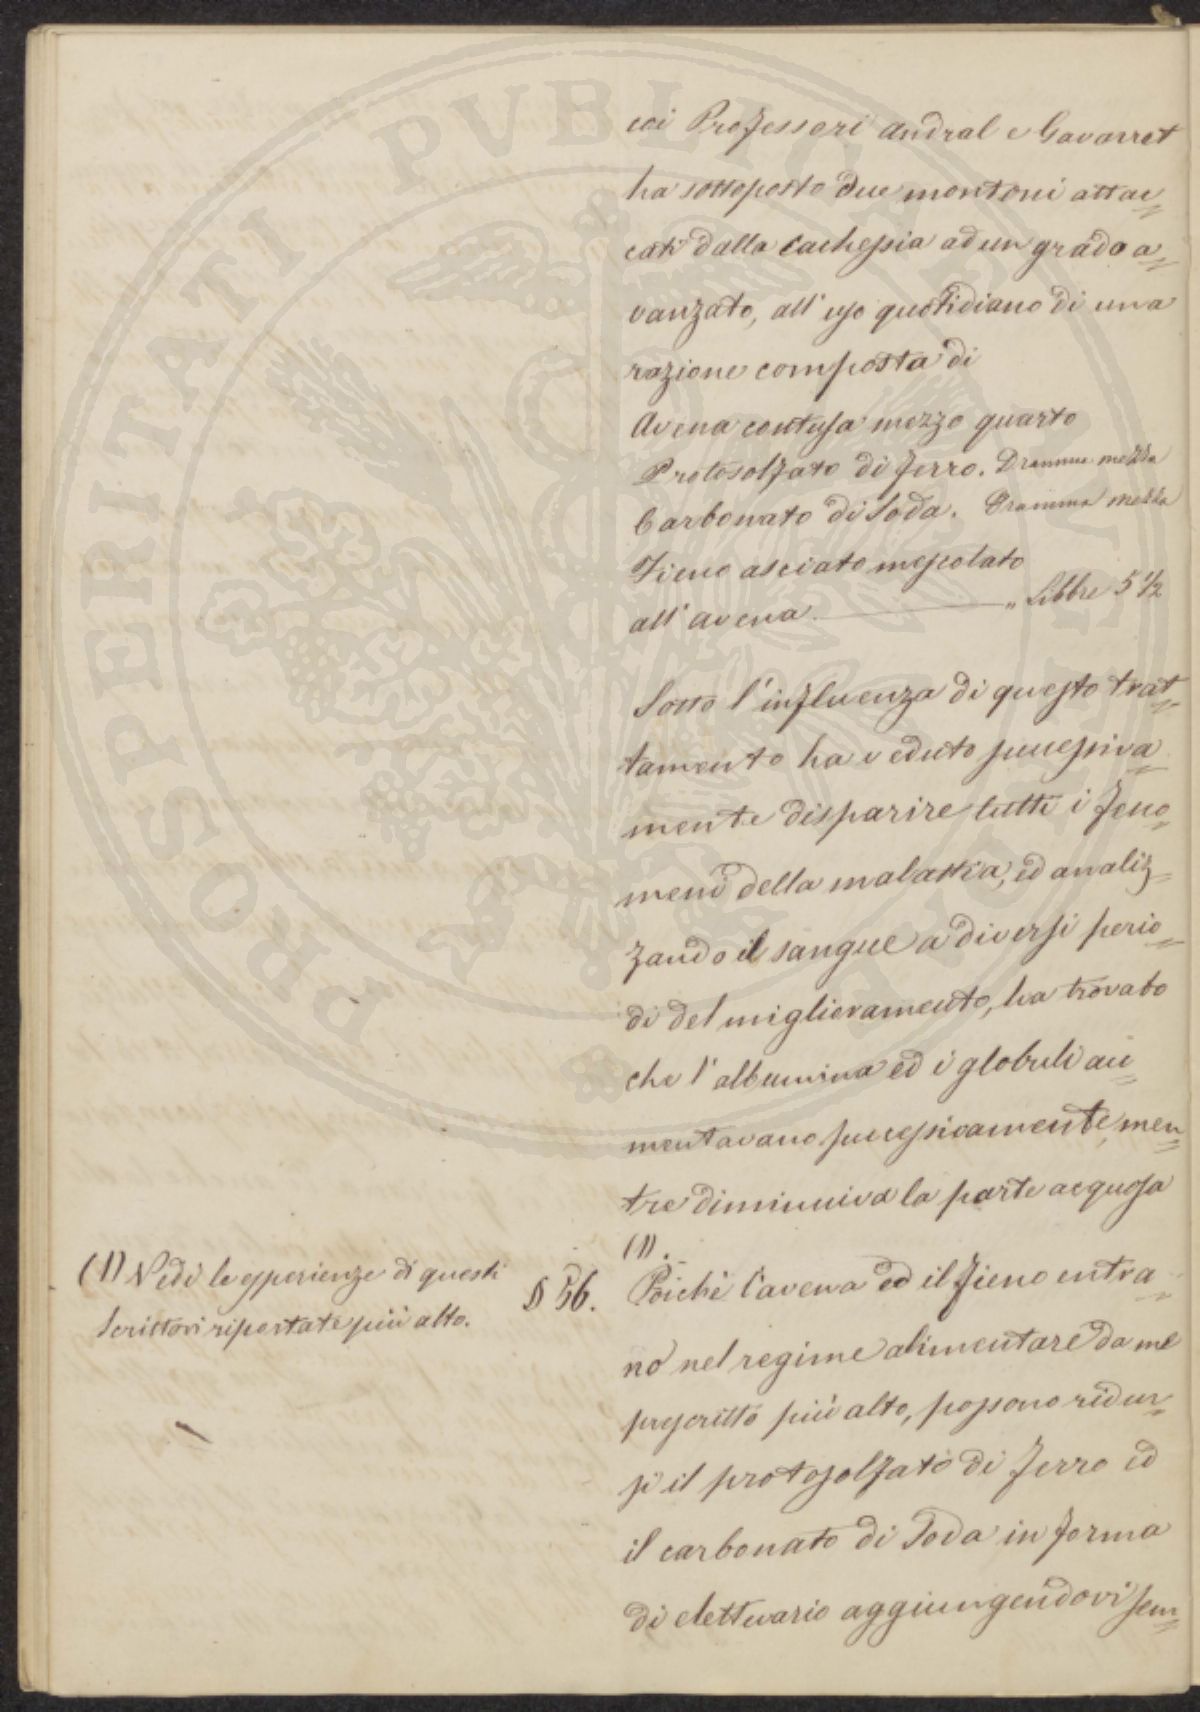 coi Professori Andral e Gavarret
ha sottoposto due montoni attac=
cati dalla cachessia ad un grado a=
vanzato, all'uso quotidiano di una
razione composta di
Avena contusa mezzo quarto
Protosolfato di ferro. Dramma mezza
Carbonato di Soda. Dramma mezza
Fieno asciato mescolato
all'avena. " Libbre 5 1/2
Sotto l'influenza di questo trat=
tamento ha veduto successiva=
mente disparire tutti i feno=
meni della malattia, ed analiz=
zando il sangue a diversi perio=
di del miglioramento, ha trovato
che l'albumina ed i globuli au=
mentavano successivamente, men=
tre diminuiva la parte acquosa
(1).
(1) Vedi le esperienze di questi
Scrittori riportate più alto.
§ 56. Poichè l'avena ed il fieno entra=
no nel regime alimentare da me
prescritto più alto, possono ridur=
si il protosolfato di ferro ed
il carbonato di Soda in forma
di elettuario aggiungendovi sem=
PROSPERITATI PVBLICAE